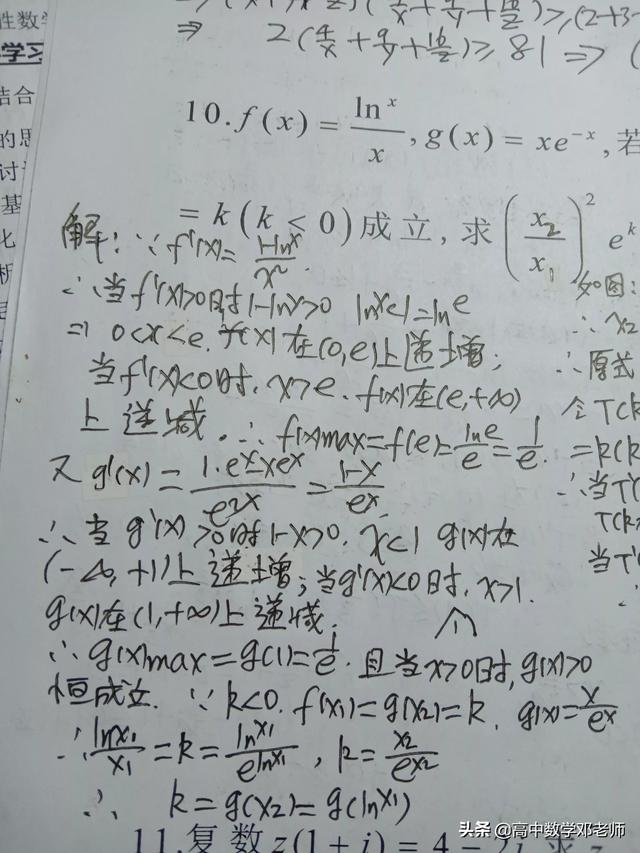 性数学
学习
结合
的思
讨
基
化
析
2(4/x+9/y+16/z)≥81⇒(
10.f(x)=ln^x/x,g(x)=xe^{-x},若
=k(k<0)成立,求(x₂/x₁)²e^k
解:∵f'(x)=1-lnx/x².
∴当f'(x)>0时1-lnx>0 lnx<1=lne
⇒0<x<e.f(x)在(0,e)上递增;
当f'(x)<0时.x>e.f(x)在(e,+∞)
上递减.∴f(x)max=f(e)=lne/e=1/e.
又g'(x)=1·e^x-xe^x/e^{2x}=1-x/e^x.
∴当g'(x)>0时1-x>0.x<1 g(x)在
(-∞,+1)上递增;当g'(x)<0时.x>1.
g(x)在(1,+∞)上递减.
∴g(x)max=g(1)=1/e.且当x>0时,g(x)>0
恒成立.∵k<0.f(x₁)=g(x₂)=k.g(x)=x/e^x
∴lnx₁/x₁=k=lnx₁/e^{lnx₁},k=x₂/e^{x₂}
∴k=g(x₂)=g(lnx₁)
如图:
∴x₂
∴原式
令T(k
=k(k
∴当T'(
T(k)
当T'
11.复数z(1+i)=4-2i,求z
头条@高中数学邓老师